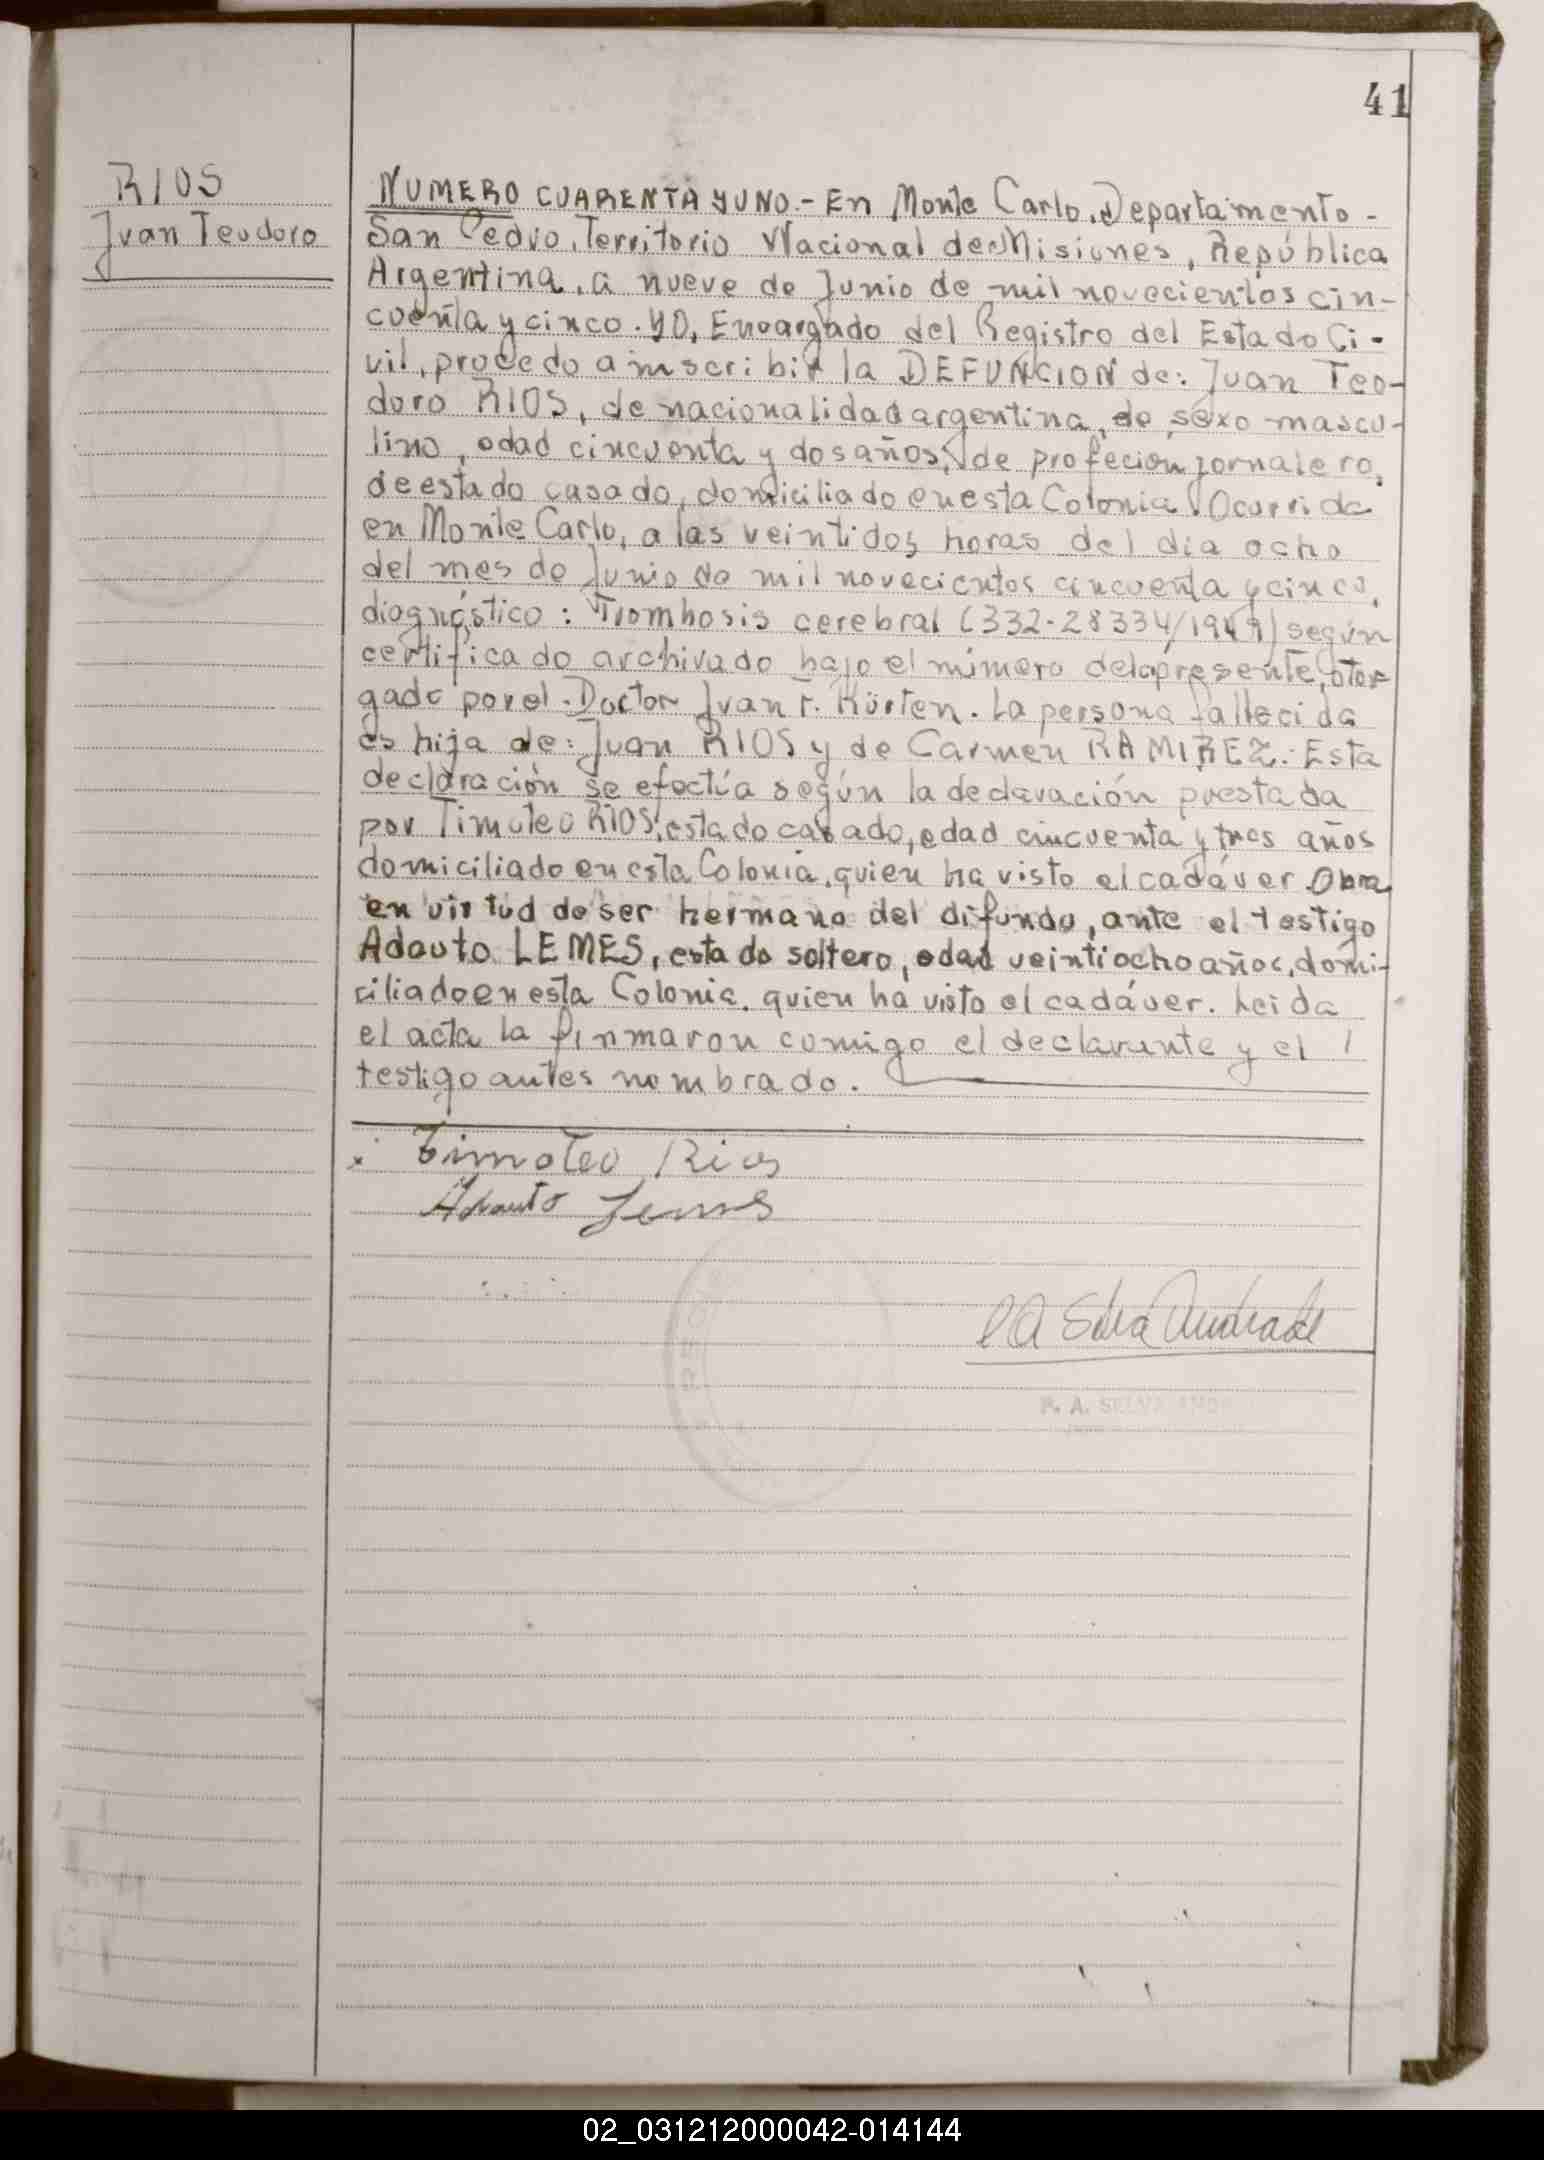 41
RIOS
Juan Teodoro
NUMERO CUARENTA Y UNO.- En Monte Carlo, Departamento -
San Pedro, Territorio Nacional de Misiones, República
Argentina, a nueve de Junio de mil novecientos cin-
cuenta y cinco. YO, Encargado del Registro del Estado Ci-
vil, procedo a inscribir la DEFUNCION de: Juan Teo-
doro RIOS, de nacionalidad argentina, de sexo mascu-
lino, edad cincuenta y dos años, de profecion jornalero,
de estado casado, domiciliado en esta Colonia. Ocurrida
en Monte Carlo, a las veintidos horas del dia ocho
del mes de Junio de mil novecientos cincuenta y cinco,
diagnóstico: Trombosis cerebral (332-28334/1949) según
certificado archivado bajo el número de la presente, otor
gado por el Doctor Juan T. Kürten. La persona fallecida
es hija de: Juan RIOS y de Carmen RAMIREZ. Esta
declaración se efectúa según la declaración prestada
por Timoteo RIOS, estado casado, edad cincuenta y tres años
domiciliado en esta Colonia, quien ha visto el cadáver. Obra
en virtud de ser hermano del difundo, ante el testigo
Adauto LEMES, estado soltero, edad veintiocho años, domi-
ciliado en esta Colonia, quien ha visto el cadáver. Leida
el acta la finmaron comigo el declarante y el
testigo antes nombrado.
Timoteo Rios
Adauto Lemes
Selva Andrade
R. A. SELVA
02_031212000042-014144